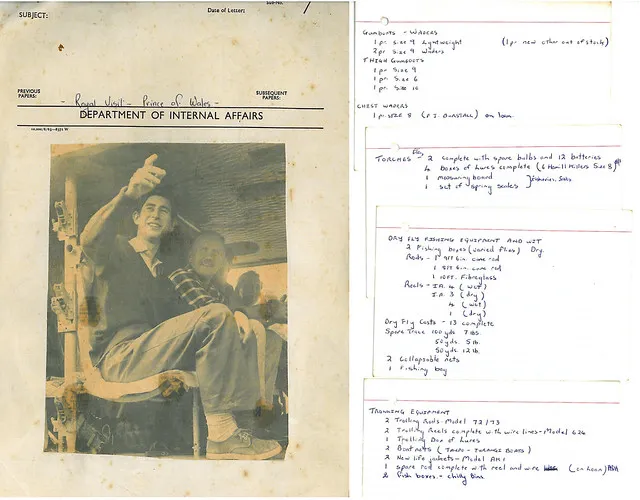 SUBJECT:
Date of Letter:
Sub-No.
1
PREVIOUS PAPERS:
SUBSEQUENT PAPERS:
- Royal Visit - Prince of Wales -
DEPARTMENT OF INTERNAL AFFAIRS
GUMBOOTS - WADERS
1 pr Size 9 Lightweight (1 pr new other out of stock)
2 pr Size 9 Waders
THIGH GUMBOOTS
1 pr Size 9
1 pr Size 6
1 pr Size 10
CHEST WADERS
1 pr. SIZE 8 (P.J. BURSTALL) on loan.
TORCHES 2 complete with spare bulbs and 12 batteries
4 boxes of lures complete (6 Hamill Killers Size 8)
1 measuring board
1 set of spring scales } Fisheries,
DRY FLY FISHING EQUIPMENT AND WET
2 Fishing boxes (varied flies) Dry.
Rods - 1 9ft 6in. cane rod
1 8ft 6in. cane rod
1 10ft. Fibreglass
Reels - I.A. 4 (wet)
I.A. 3 (dry)
4 (wet)
1 (dry)
Dry Fly Casts - 13 complete
Spare Trace 100yds 7 lbs.
50yds. 5 lb.
50yds 12 lb.
2 Collapsable nets
1 Fishing bag
TROLLING EQUIPMENT
2 Trolling Rods - Model 72/73
2 Trolling Reels complete with wire lines - Model 626
1 Trolling Box of Lures
2 Boat nets (TAUPO - TURANGI BOATS)
2 New life jackets - Model AK1
1 spare rod complete with reel and wire (on loan)
2 Fish boxes - chilly bins